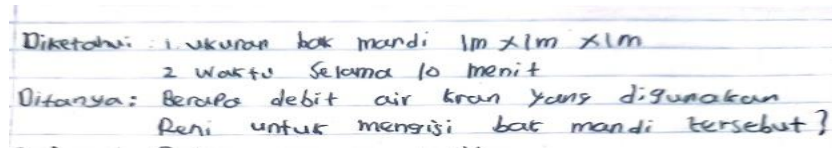 Diketahui : 1. ukuran bak mandi 1m x 1m x 1m
2 waktu selama 10 menit
Ditanya : Berapa debit air kran yang digunakan
Reni untuk mengisi bak mandi tersebut ?